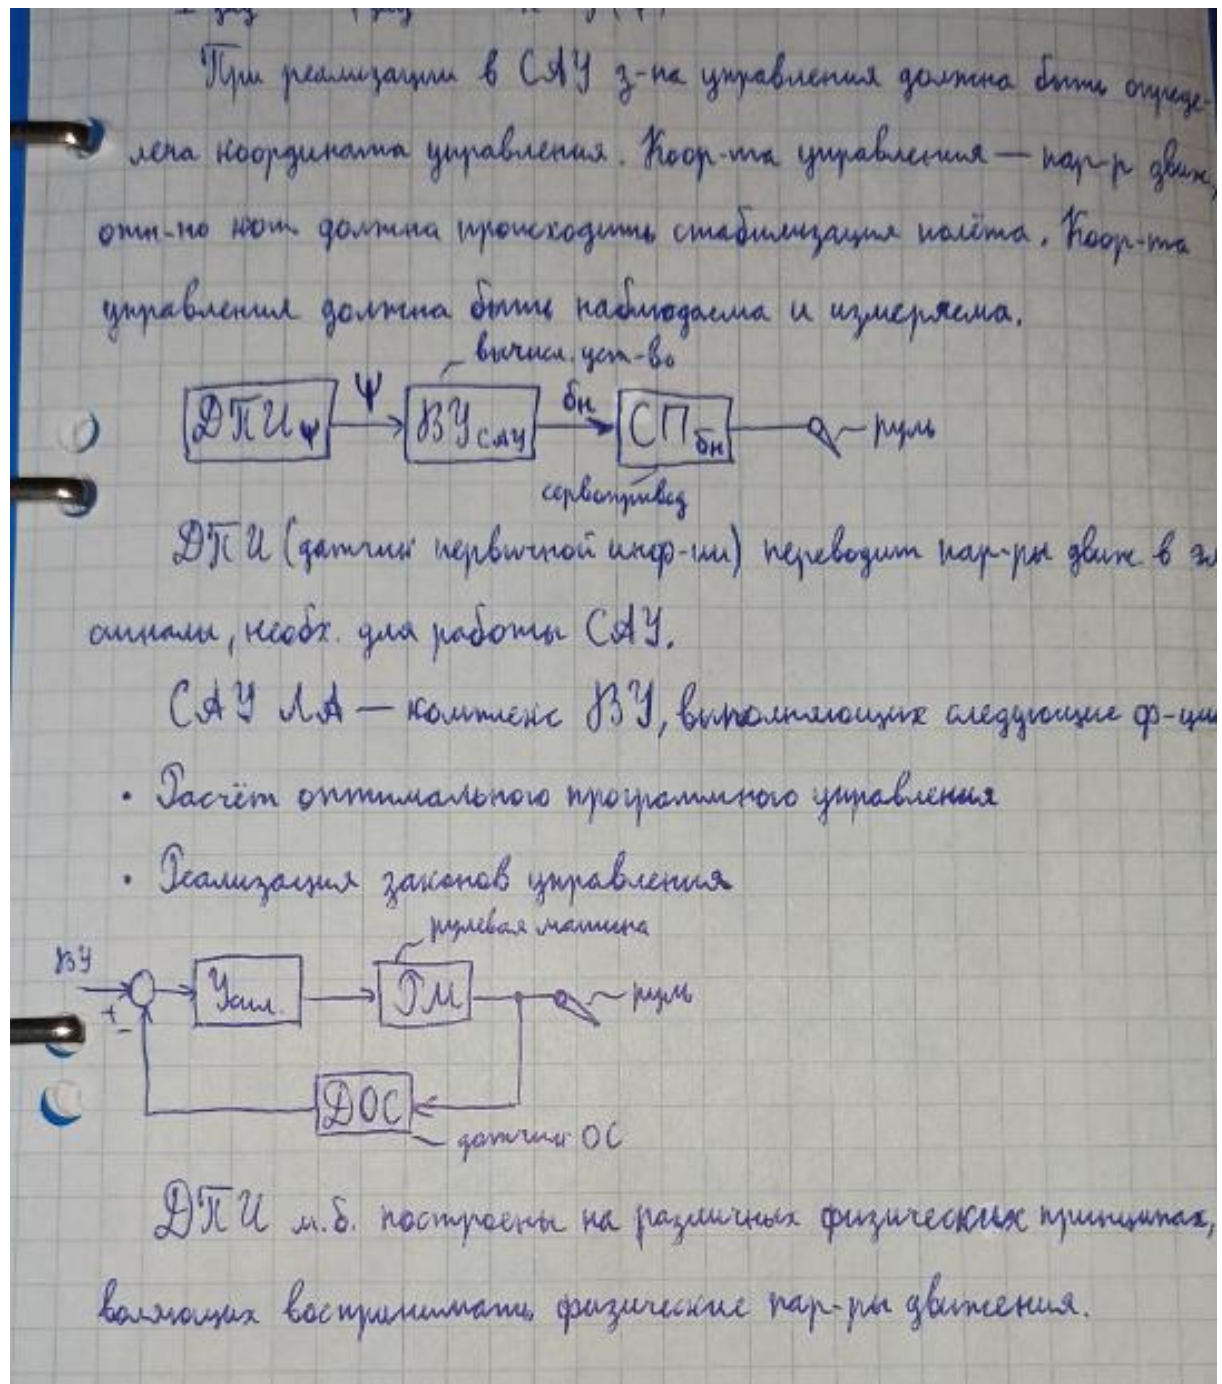 При реализации в САУ з-на управления должна быть опреде-
лена координата управления. Коор-та управления — пар-р движ,
отн-но кот должна происходить стабилизация полёта. Коор-та
управления должна быть наблюдаема и измеряема.
вычисл. уст-во
ДПИψ ψ ВУСАУ δн СПδн руль
сервопривод
ДПИ (датчики первичной инф-ии) переводит пар-ры движ. в эл
сигналы, необх. для работы САУ.
САУ ЛА — комплекс ВУ, выполняющих следующие ф-ции
• Расчёт оптимального программного управления
• Реализация законов управления
рулевая машина
ВУ + - Усил. РМ руль
ДОС
датчик ОС
ДПИ м.б. построены на различных физических принципах,
воляющих воспринимать физические пар-ры движения.